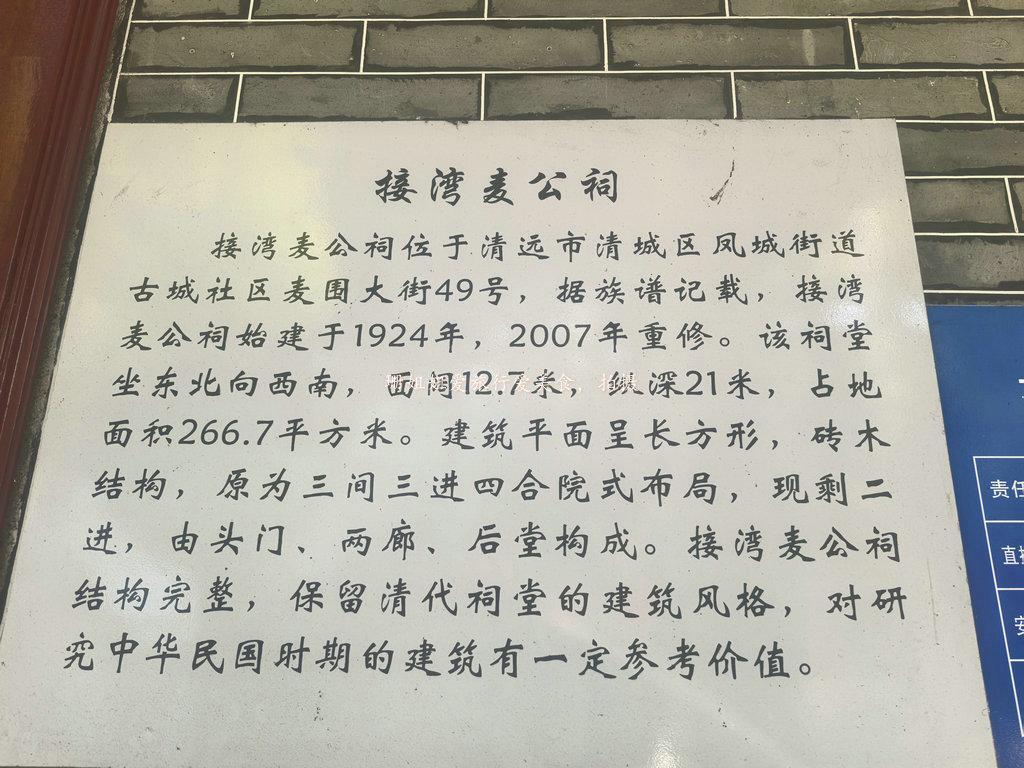 接湾麦公祠
接湾麦公祠位于清远市清城区凤城街道
古城社区麦围大街49号，据族谱记载，接湾
麦公祠始建于1924年，2007年重修。该祠堂
坐东北向西南，面阔12.7米，纵深21米，占地
面积266.7平方米。建筑平面呈长方形，砖木
结构，原为三间三进四合院式布局，现剩二
进，由头门、两廊、后堂构成。接湾麦公祠
结构完整，保留清代祠堂的建筑风格，对研
究中华民国时期的建筑有一定参考价值。
责任
直